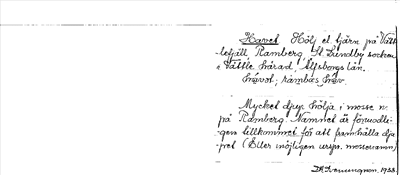 Havet Hölj el. tjärn på Vätt-
lefjäll Ramberg, St. Lundby socken
Vättle härad, Älfsborgs län.
hávət; rámbæs hav.
Mycket djup hölja i mosse n.
på Ramberg. Namnet är förmodli-
gen tillkommet för att framhålla dju-
pet (Eller möjligen urspr. mossenamn)
1933.